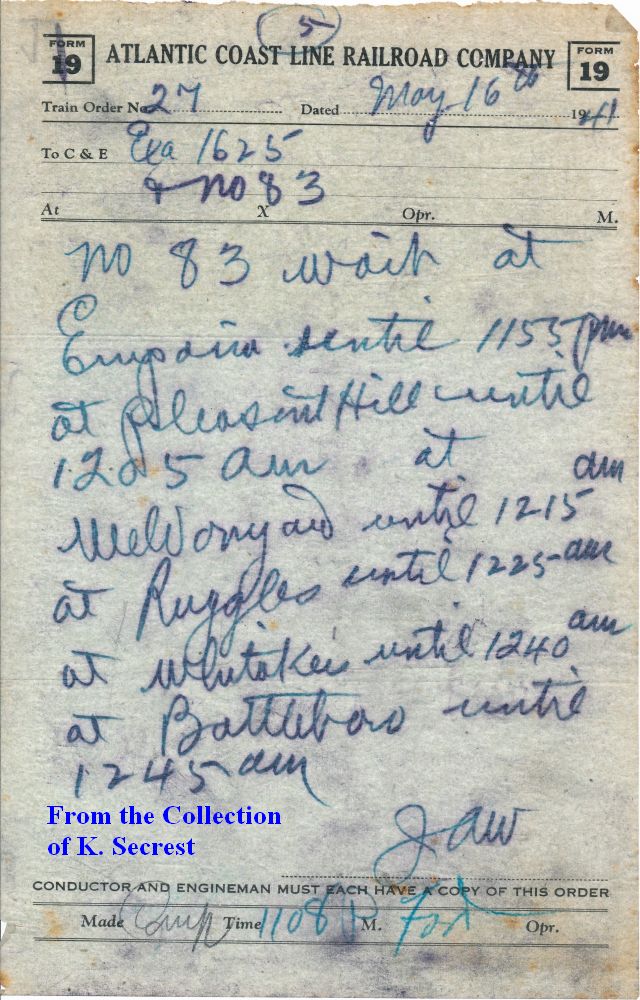 5
FORM 19 ATLANTIC COAST LINE RAILROAD COMPANY FORM 19
Train Order No. 27 Dated May 16th 1941
To C & E Exa 1625
& no 83
At X Opr. M.
no 83 wait at
Emporia until 1155 pm
at Pleasant Hill until
1205 am at
Weldon yard until 1215 am
at Ruggles until 1225 am
at Whitakers until 1240 am
at Battleboro until
1245 am
From the Collection
of K. Secrest
JAW
CONDUCTOR AND ENGINEMAN MUST EACH HAVE A COPY OF THIS ORDER
Made Comp Time 1108 P M. Opr.